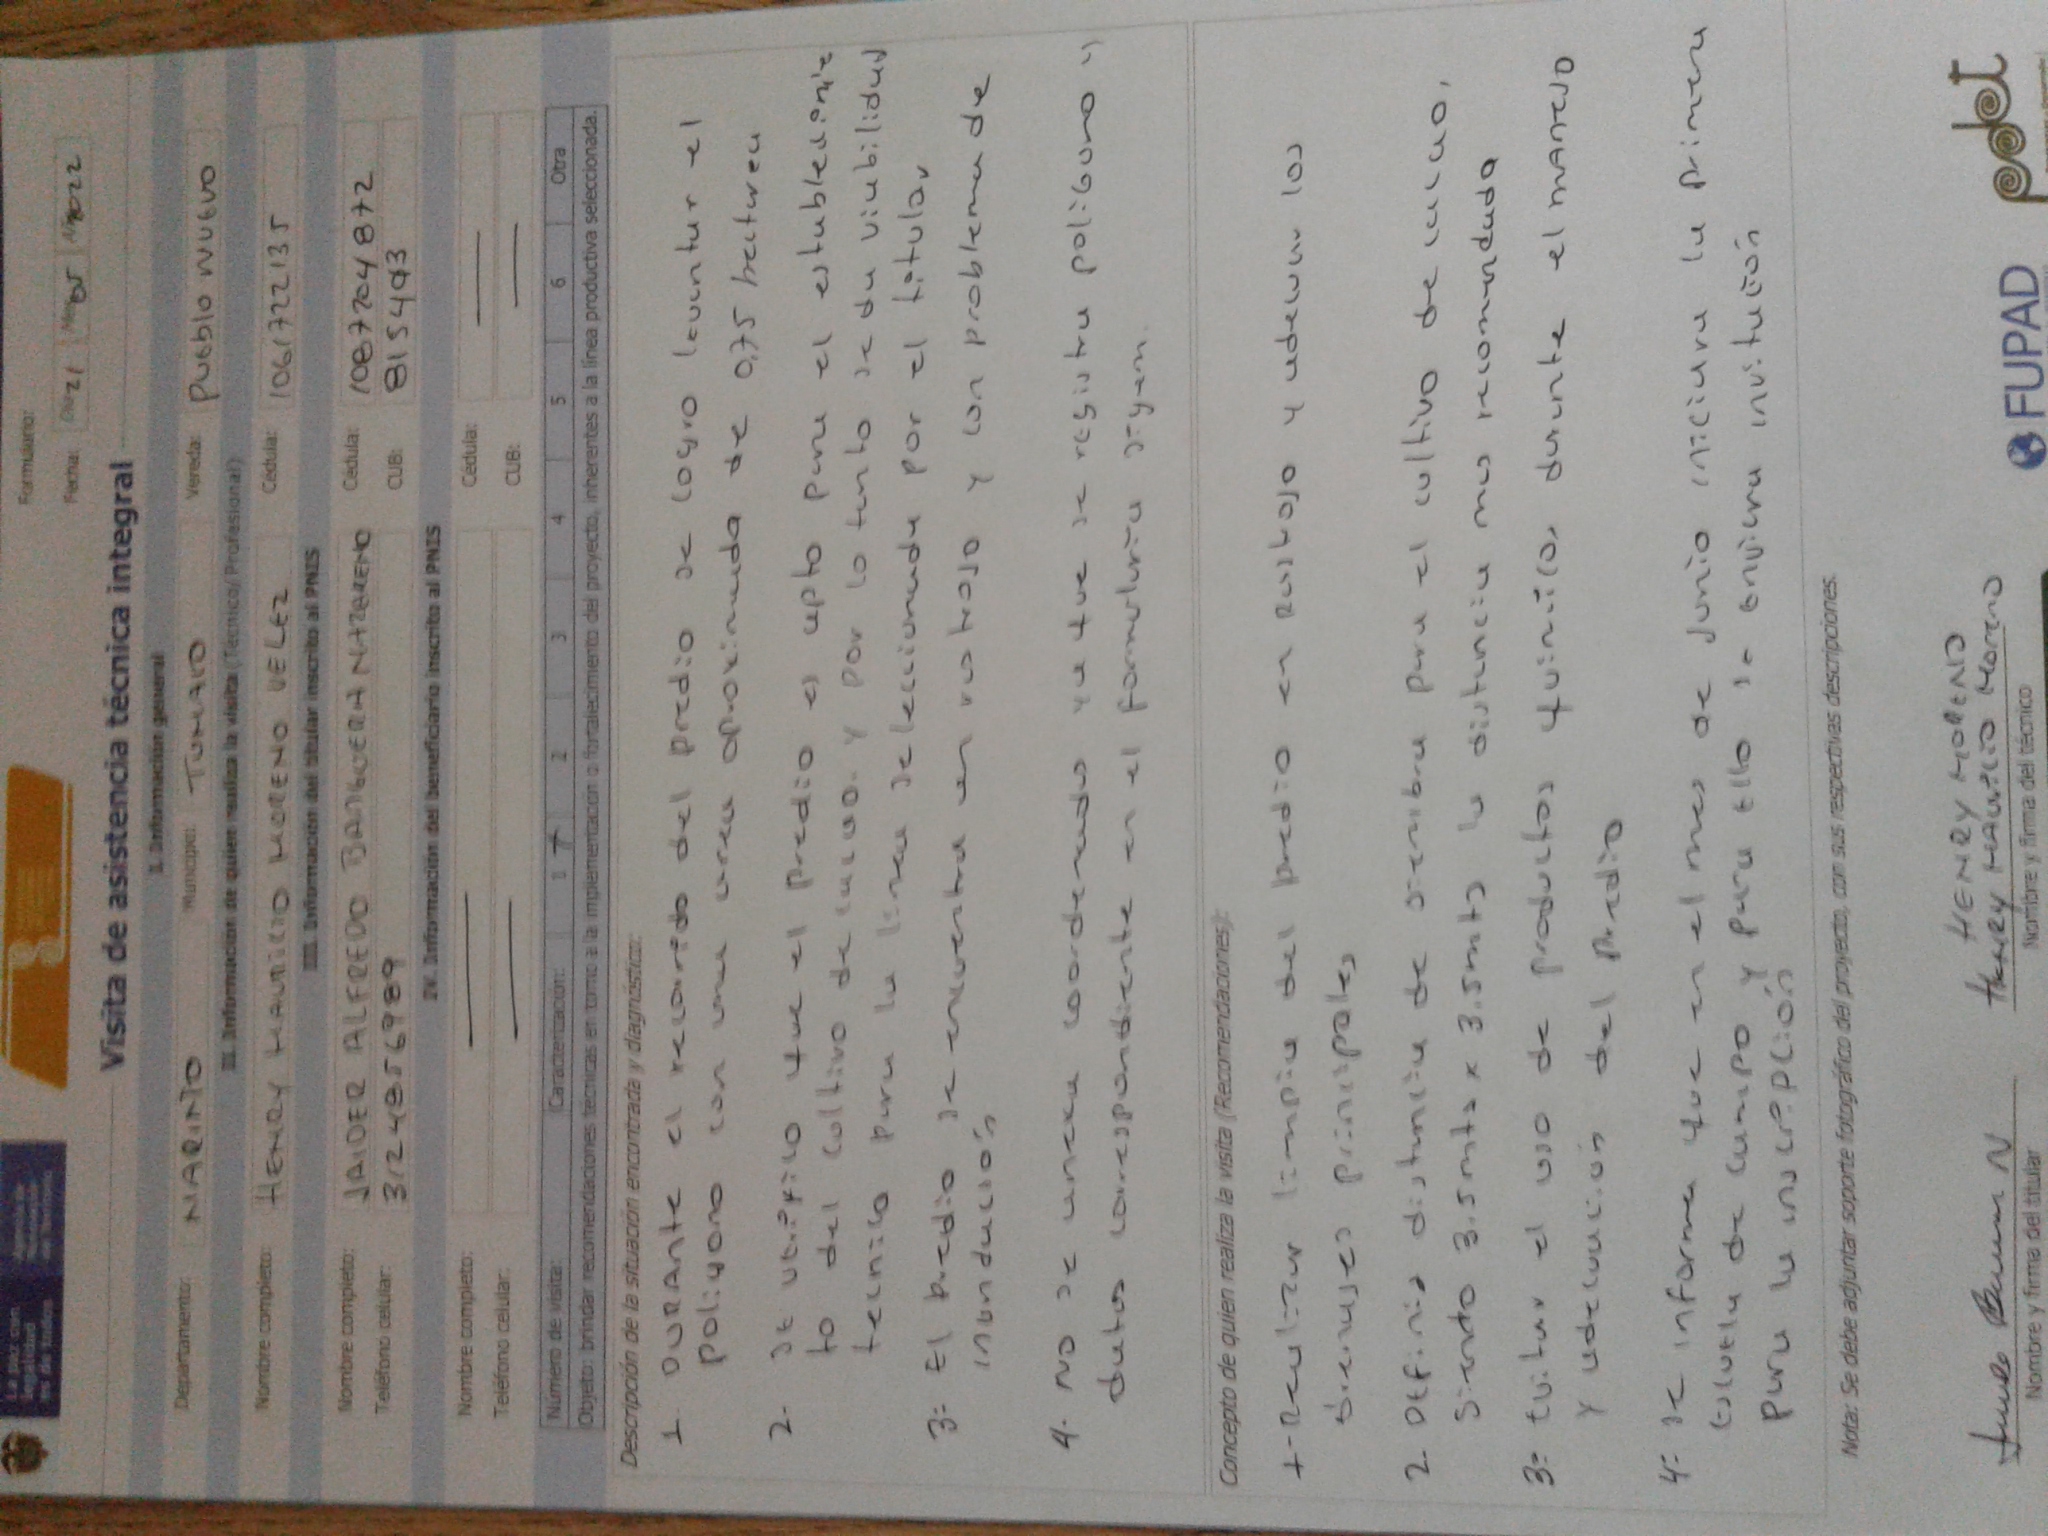 Formulario:
Fecha: Día 21 Mes 05 Año 2022
Visita de asistencia técnica integral
I. Información general
Departamento: NARIÑO Municipio: TUMACO Vereda: PUEBLO NUEVO
II. Información de quien realiza la visita (Técnico/Profesional)
Nombre completo: HENRY MAURICIO MORENO VELEZ Cédula: 1061722135
III. Información del titular inscrito al PNIS
Nombre completo: JAIDER ALFREDO BANGUERA NAZARENO Cédula: 1087204872
Teléfono celular: 3124856989 CUB: 815493
IV. Información del beneficiario inscrito al PNIS
Nombre completo: Cédula:
Teléfono celular: CUB:
Número de visita: Caracterización: 1 2 3 4 5 6 Otra
Objeto: brindar recomendaciones técnicas en torno a la implementación o fortalecimiento del proyecto, inherentes a la línea productiva seleccionada.
Descripción de la situación encontrada y diagnóstico:
1 DURANTE el recorrido del predio se logro levantar el
poligono con una area aproximada de 0,75 hectarea
2- SE verifico que el predio es apto para el establecimie
to del cultivo de cacao. y por lo tanto se da viabilidad
tecnico para la linea seleccionada por el titular
3- El predio se encuentra en rastrojo y con problema de
inundación
4- NO se anexa coordenadas ya que se registra poligono y
datos correspondiente en el formulario sigem.
Concepto de quien realiza la visita (Recomendaciones):
1- Realizar limpia del predio en Rastrojo y adecuar los
drenajes principales
2- Definir distancia de siembra para el cultivo de cacao,
siendo 3.5mts x 3.5mts la distancia mas recomendada
3- Evitar el uso de productos quimicos durante el MANEJO
y adecuación del predio
4- se informa que en el mes de Junio iniciara la primera
Escuela de campo y para Ello se enviara invitación
para la inscripción
Nota: Se debe adjuntar soporte fotográfico del proyecto, con sus respectivas descripciones.
HENRY MORENO
Henry Mauricio Moreno
Nombre y firma del titular Nombre y firma del técnico
FUPAD pdet